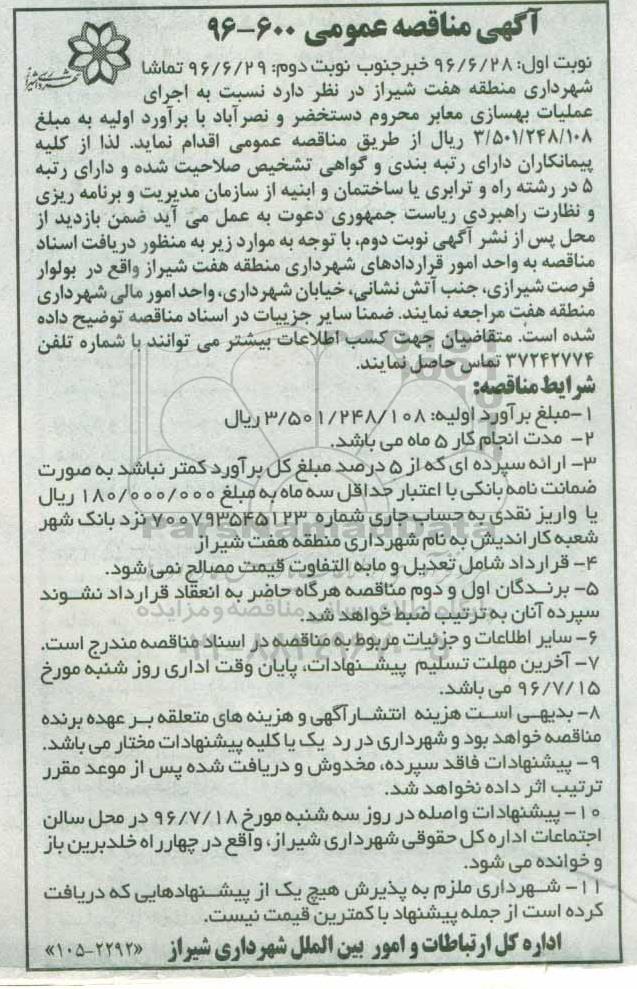 آگهی مناقصه عمومی ۶۰۰-۹۶
نوبت اول: ۹۶/۶/۲۸ خبرجنوب نوبت دوم: ۹۶/۶/۲۹ تماشا
شهرداری منطقه هفت شیراز در نظر دارد نسبت به اجرای
عملیات بهسازی معابر محروم دستخضر و نصرآباد با برآورد اولیه به مبلغ
۳/۵۰۱/۲۴۸/۱۰۸ ریال از طریق مناقصه عمومی اقدام نماید. لذا از کلیه
پیمانکاران دارای رتبه بندی و گواهی تشخیص صلاحیت شده و دارای رتبه
۵ در رشته راه و ترابری یا ساختمان و ابنیه از سازمان مدیریت و برنامه ریزی
و نظارت راهبردی ریاست جمهوری دعوت به عمل می آید ضمن بازدید از
محل پس از نشر آگهی نوبت دوم، با توجه به موارد زیر به منظور دریافت اسناد
مناقصه به واحد امور قراردادهای شهرداری منطقه هفت شیراز واقع در بولوار
فرصت شیرازی، جنب آتش نشانی، خیابان شهرداری، واحد امور مالی شهرداری
منطقه هفت مراجعه نمایند. ضمنا سایر جزییات در اسناد مناقصه توضیح داده
شده است. متقاضیان جهت کسب اطلاعات بیشتر می توانند با شماره تلفن
۳۷۲۴۲۷۷۴ تماس حاصل نمایند.
شرایط مناقصه:
۱-مبلغ برآورد اولیه: ۳/۵۰۱/۲۴۸/۱۰۸ ریال
۲- مدت انجام کار ۵ ماه می باشد.
۳- ارائه سپرده ای که از ۵ درصد مبلغ کل برآورد کمتر نباشد به صورت
ضمانت نامه بانکی با اعتبار حداقل سه ماه به مبلغ ۱۸۰/۰۰۰/۰۰۰ ریال
یا واریز نقدی به حساب جاری شماره ۷۰۰۷۹۳۵۴۵۱۲۳ نزد بانک شهر
شعبه کاراندیش به نام شهرداری منطقه هفت شیراز
۴- قرارداد شامل تعدیل و مابه التفاوت قیمت مصالح نمی شود.
۵- برندگان اول و دوم مناقصه هرگاه حاضر به انعقاد قرارداد نشوند
سپرده آنان به ترتیب ضبط خواهد شد.
۶- سایر اطلاعات و جزئیات مربوط به مناقصه در اسناد مناقصه مندرج است.
۷- آخرین مهلت تسلیم پیشنهادات، پایان وقت اداری روز شنبه مورخ
۹۶/۷/۱۵ می باشد.
۸- بدیهی است هزینه انتشار آگهی و هزینه های متعلقه بر عهده برنده
مناقصه خواهد بود و شهرداری در رد یک یا کلیه پیشنهادات مختار می باشد.
۹- پیشنهادات فاقد سپرده، مخدوش و دریافت شده پس از موعد مقرر
ترتیب اثر داده نخواهد شد.
۱۰- پیشنهادات واصله در روز سه شنبه مورخ ۹۶/۷/۱۸ در محل سالن
اجتماعات اداره کل حقوقی شهرداری شیراز، واقع در چهارراه خلدبرین باز
و خوانده می شود.
۱۱- شهرداری ملزم به پذیرش هیچ یک از پیشنهادهایی که دریافت
کرده است از جمله پیشنهاد با کمترین قیمت نیست.
اداره کل ارتباطات و امور بین الملل شهرداری شیراز «۱۰۵-۲۲۹۲»